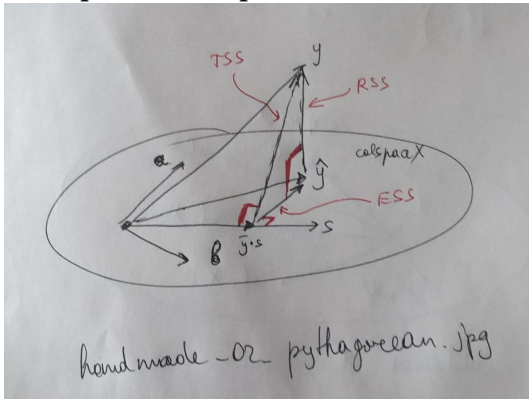 TSS
y
RSS
a
colspaa X
ŷ
ESS
ȳ·s
s
B
handmade_02_pythagorean.jpg